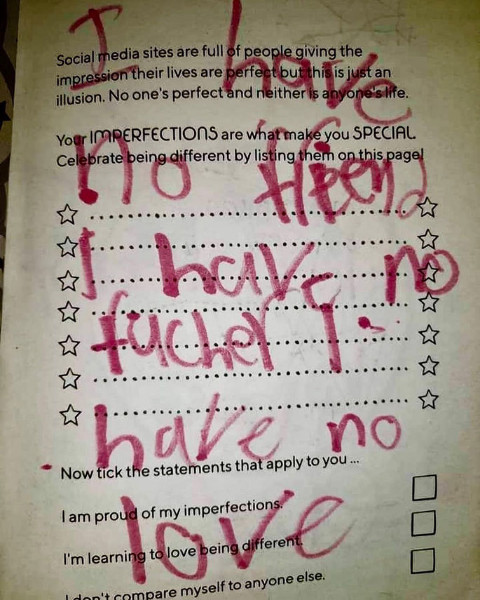 I have
Social media sites are full of people giving the
impression their lives are perfect but this is just an
illusion. No one's perfect and neither is anyone's life.
Your IMPERFECTIONS are what make you SPECIAL.
Celebrate being different by listing them on this page!
no
I have no
fucher I
have no
Now tick the statements that apply to you ...
I am proud of my imperfections.
love
I'm learning to love being different.
I don't compare myself to anyone else.